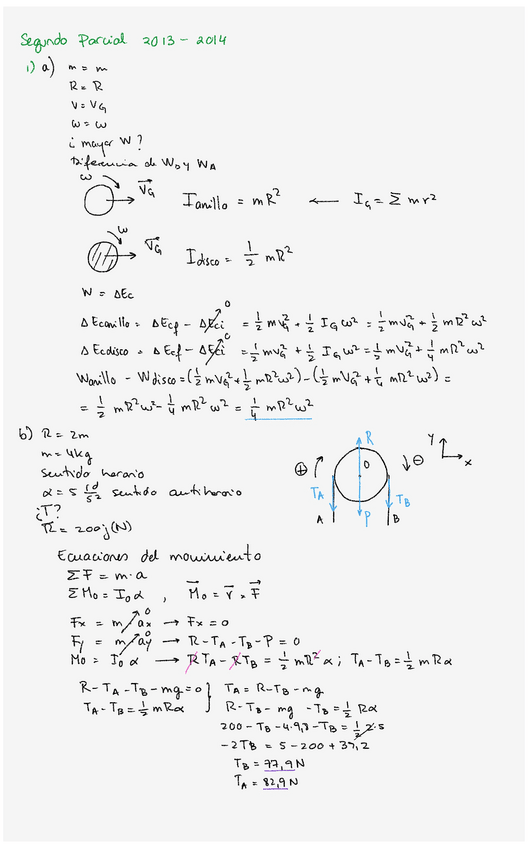 Segundo Parcial 2013 - 2014
1) a) m = m
R = R
V = VG
ω = ω
¿ mayor W?
Diferencia de WD y WA
ω VG I anillo = mR² ← IG = Σ mr²
ω VG I disco = 1/2 mR²
W = ΔEc
Δ Ecanillo = ΔEcf - ΔEci 0 = 1/2 mVG² + 1/2 IG ω² = 1/2 mVG² + 1/2 mR²ω²
Δ Ecdisco = ΔEcf - ΔEci 0 = 1/2 mVG² + 1/2 IG ω² = 1/2 mVG² + 1/4 mR²ω²
Wanillo - Wdisco = (1/2 mVG² + 1/2 mR²ω²) - (1/2 mVG² + 1/4 mR²ω²) =
= 1/2 mR²ω² - 1/4 mR²ω² = 1/4 mR²ω²
b) R = 2m
m = 4kg
Sentido horario
α = 5 rd/s² sentido antihorario
¿T?
R = 200j (N)
R
O
⊕
⊖
TA
TB
A
P
B
Y
x
Ecuaciones del movimiento
ΣF = m·a
ΣMo = Io α , Mo = r x F
Fx = m ax 0 → Fx = 0
Fy = m ay 0 → R - TA - TB - P = 0
Mo = Io α → R TA - R TB = 1/2 mR² α ; TA - TB = 1/2 mRα
R - TA - TB - mg = 0 } TA = R - TB - mg
TA - TB = 1/2 mRα } R - TB - mg - TB = 1/2 Rα
200 - TB - 4·9,8 - TB = 1/2 2·5
-2TB = 5 - 200 + 39,2
TB = 77,9 N
TA = 82,9 N